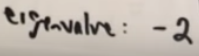 eigenvalue: -2